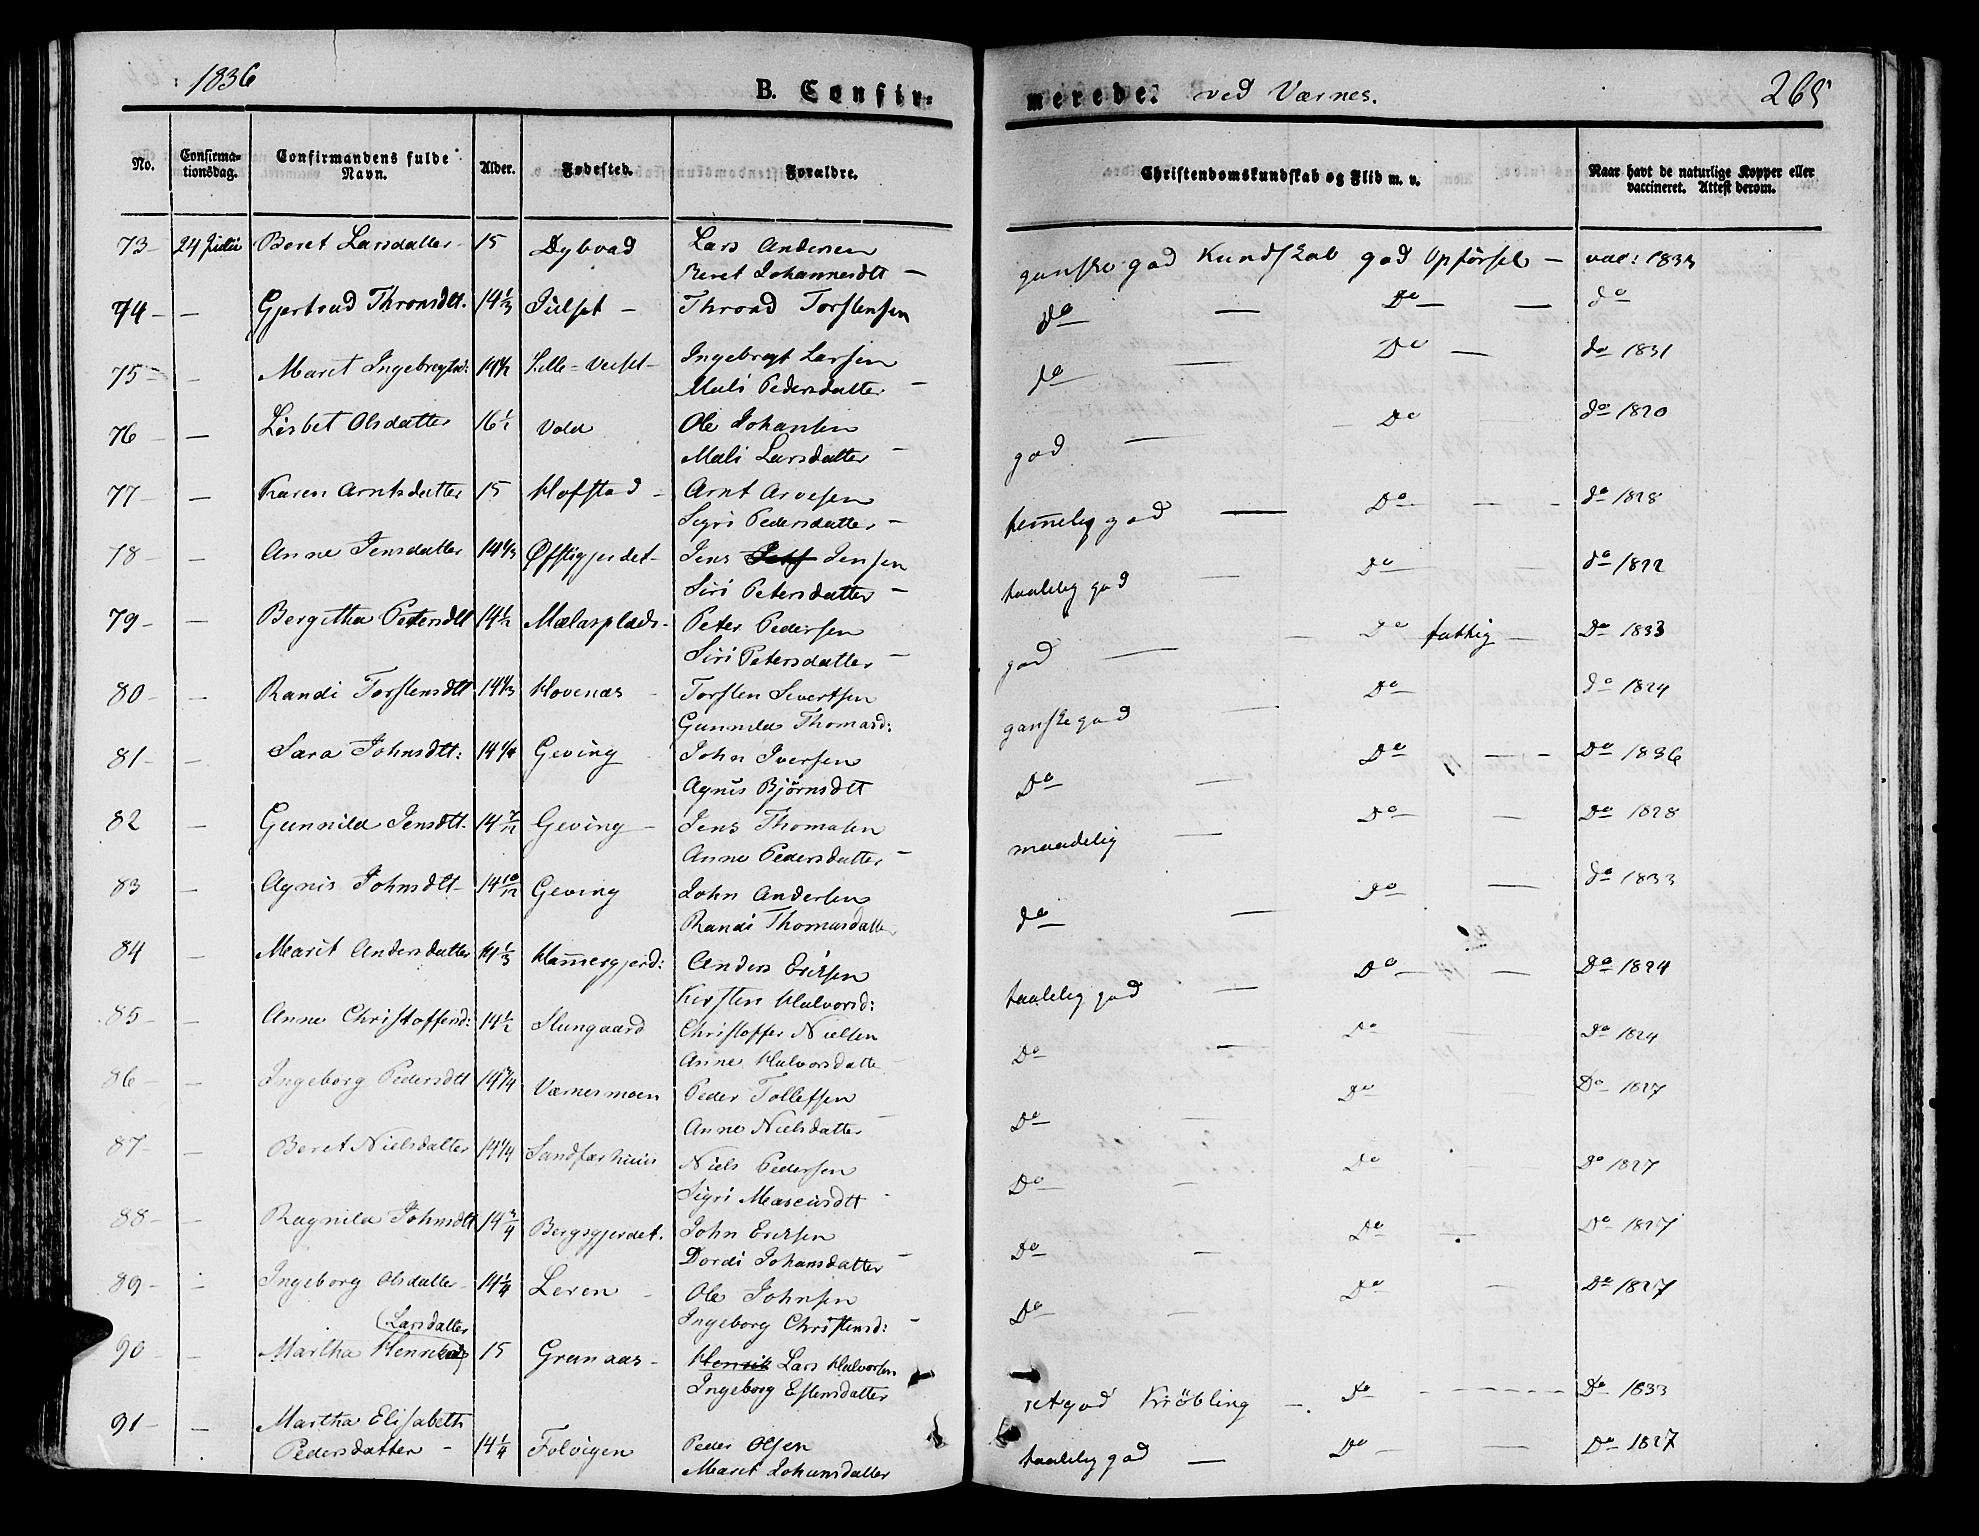 1836
B. Confir-
merede. ved Værnes.
265
No.
Confirma-
tionsdag.
Confirmandens fulde
Navn.
Alder.
Fødested.
Forældre.
Christendomskundskab og Flid m. v.
Naar havt de naturlige Kopper eller
vaccineret. Attest derom.
73- 24 Julii Beret Larsdatter- 15 Dybvad Lars Andersen
Beret Johannesdtt -
ganske god Kundskab god Opførsel - vac: 1833
74- - Gjertrud Thronsdtt. 14 1/3 Julset - Thrond Torstensen
do - Do - - do
75- - Maret Ingebregtsd: 14 1/2 Lille=Velset- Ingebregt Larsen
Mali Pedersdatter -
do - Do - do 1831
76- - Lisbet Olsdatter 16 1/2 Vold Ole Johansen
Mali Larsdatter -
god - Do do 1820
77- - Karen Arntsdatter 15 Hofstad - Arnt Arvesen
Sigri Pedersdatter -
temelig god - Do - - - do 1828
78- - Anne Jensdatter 14 1/3 Øfstigjerdet- Jens Jensen
Siri Petersdatter -
taalelig god - Do - - do 1822
79- - Bergitha Petersdtt 14 1/2 Mælasplads- Peter Pedersen
Siri Petersdatter -
god - - Do fattig - Do 1833
80- - Randi Torstensdtt 14 1/3 Hovenas - Torsten Sivertsen
Gunnild Thomasd:
ganske god - Do - do 1824
81- - Sara Johnsdtt: 14 1/4 Geving - John Iversen
Agnis Bjørnsdtt
Do - Do - - Do 1836
82 - Gunnild Jensdtt. 14 7/12 Geving - Jens Thomasen
Anne Pedersdatter -
maadelig - Do - - Do 1828
83 - Agnis Johnsdtt- 14 10/12 Geving John Andersen
Randi Thomasdatter
do - Do - do 1833
84 - Marit Andersdatter 14 1/3 Hamergjerd: Anders Ericsen
Kirsten Halvorsd:
taalelig god - Do - - Do 1824
85- - Anne Christoffersd: 14 1/2 Stungaard Christoffer Nielsen
Anne Halvorsdatter
Do - Do - Do 1824
86- - Ingeborg Pedersdtt 14 3/4 Værnesmoen Peder Tollefsen
Anne Nielsdatter -
Do - Do Do 1827
87- - Beret Nielsdatter 14 1/4 Sandfærhuus Niels Pedersen
Sigri Marcusdtt -
Do - Do Do 1827
88- - Ragnild Johnsdtt 14 3/4 Bergsgjerdet. John Ericsen
Dordi Johansdatter -
Do - Do - Do 1827
89- - Ingeborg Olsdatter- 14 1/4 Leren - Ole Johnsen
Ingeborg Christensd: -
Do - Do - Do 1827
(Larsdatter
90- - Martha 15 Grønaas- Henrik Lars Halvorsen
Ingeborg Estensdatter
retgod Krøbling -. Do - - - - - - Do 1833
91- - Martha Elisabeth
Pedersdatter - 14 1/4 Folvigen Peder Olsen
Maret Johansdatter
taalelig god - Do - - Do 1827